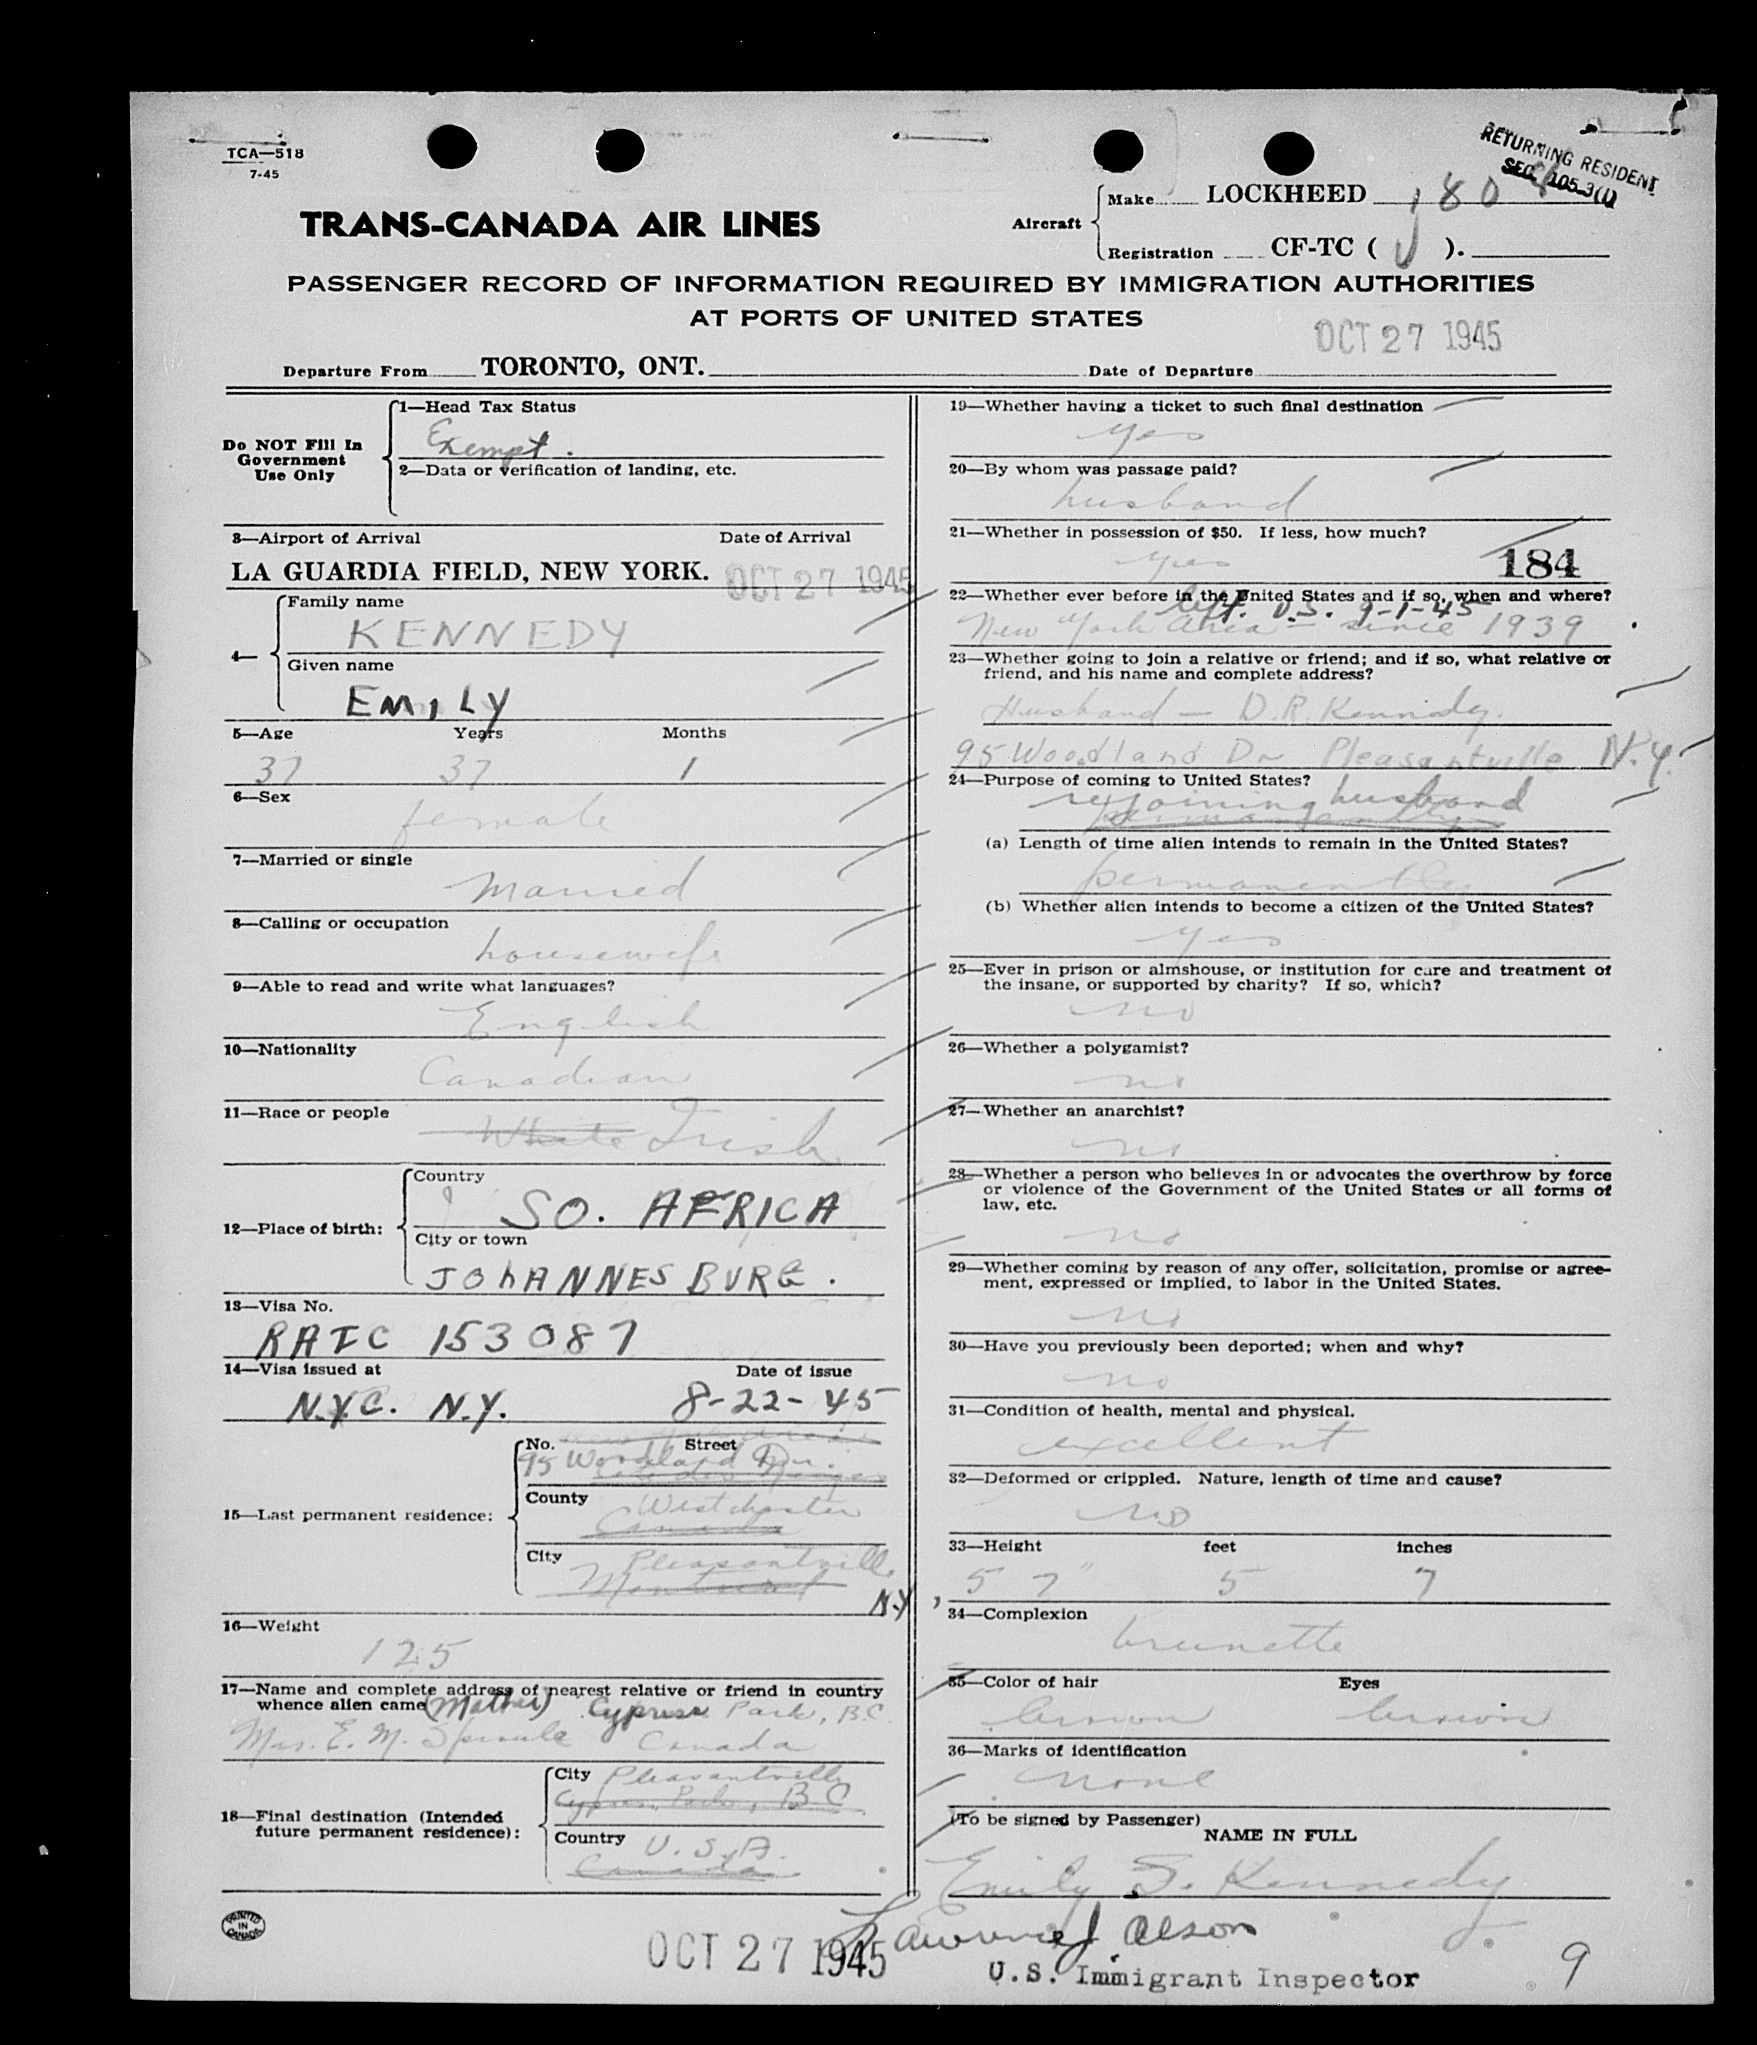 TCA—518
7-45
RETURNING RESIDENT
SEC. 105.3(1)
TRANS-CANADA AIR LINES
Aircraft
Make LOCKHEED 180
Registration CF-TC ( J ).
PASSENGER RECORD OF INFORMATION REQUIRED BY IMMIGRATION AUTHORITIES
AT PORTS OF UNITED STATES
OCT 27 1945
Departure From TORONTO, ONT. Date of Departure
Do NOT Fill In
Government
Use Only
1—Head Tax Status
Exempt.
2—Data or verification of landing, etc.
3—Airport of Arrival Date of Arrival
LA GUARDIA FIELD, NEW YORK. OCT 27 1945
4—
Family name
KENNEDY
Given name
EMILY
5—Age Years Months
37 37 1
6—Sex
female
7—Married or single
Married
8—Calling or occupation
housewife
9—Able to read and write what languages?
English
10—Nationality
Canadian
11—Race or people
White Irish
12—Place of birth:
Country
SO. AFRICA
City or town
JOHANNESBURG.
13—Visa No.
RAIC 153087
14—Visa issued at Date of issue
N.Y.C. N.Y. 8-22-45
15—Last permanent residence:
No. Street
95 Woodland Dr.
County
Westchester
Canada
City
Pleasantville
Montreal
N.Y.
16—Weight
125
17—Name and complete address of nearest relative or friend in country
whence alien came (Mother) Cypress Park, B.C.
Mrs. E. M. Sproule Canada
18—Final destination (Intended
future permanent residence):
City Pleasantville
Cypress Park, B C
Country U.S.A.
Canada
19—Whether having a ticket to such final destination
yes
20—By whom was passage paid?
husband
21—Whether in possession of $50. If less, how much?
yes
184
22—Whether ever before in the United States and if so, when and where?
left U.S. 9-1-45
New York Area — since 1939
23—Whether going to join a relative or friend; and if so, what relative or
friend, and his name and complete address?
Husband — D.R. Kennedy.
95 Woodland Dr Pleasantville N.Y.
24—Purpose of coming to United States?
rejoining husband
permanently
(a) Length of time alien intends to remain in the United States?
permanently
(b) Whether alien intends to become a citizen of the United States?
yes
25—Ever in prison or almshouse, or institution for care and treatment of
the insane, or supported by charity? If so, which?
no
26—Whether a polygamist?
no
27—Whether an anarchist?
no
28—Whether a person who believes in or advocates the overthrow by force
or violence of the Government of the United States or all forms of
law, etc.
no
29—Whether coming by reason of any offer, solicitation, promise or agree-
ment, expressed or implied, to labor in the United States.
no
30—Have you previously been deported; when and why?
no
31—Condition of health, mental and physical.
excellent
32—Deformed or crippled. Nature, length of time and cause?
no
33—Height feet inches
5 7" 5 7
34—Complexion
brunette
35—Color of hair Eyes
brown brown
36—Marks of identification
none
(To be signed by Passenger)
NAME IN FULL
Emily S. Kennedy
PRINTED
IN
CANADA
OCT 27 1945
Lawrence J. Olson
U.S. Immigrant Inspector
9